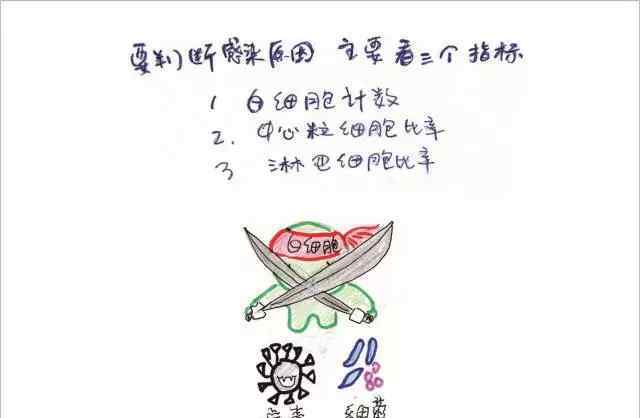 要判断感染原因 主要看三个指标
1 白细胞计数
2. 中心粒细胞比率
3 淋巴细胞比率
白细胞
病毒 细菌